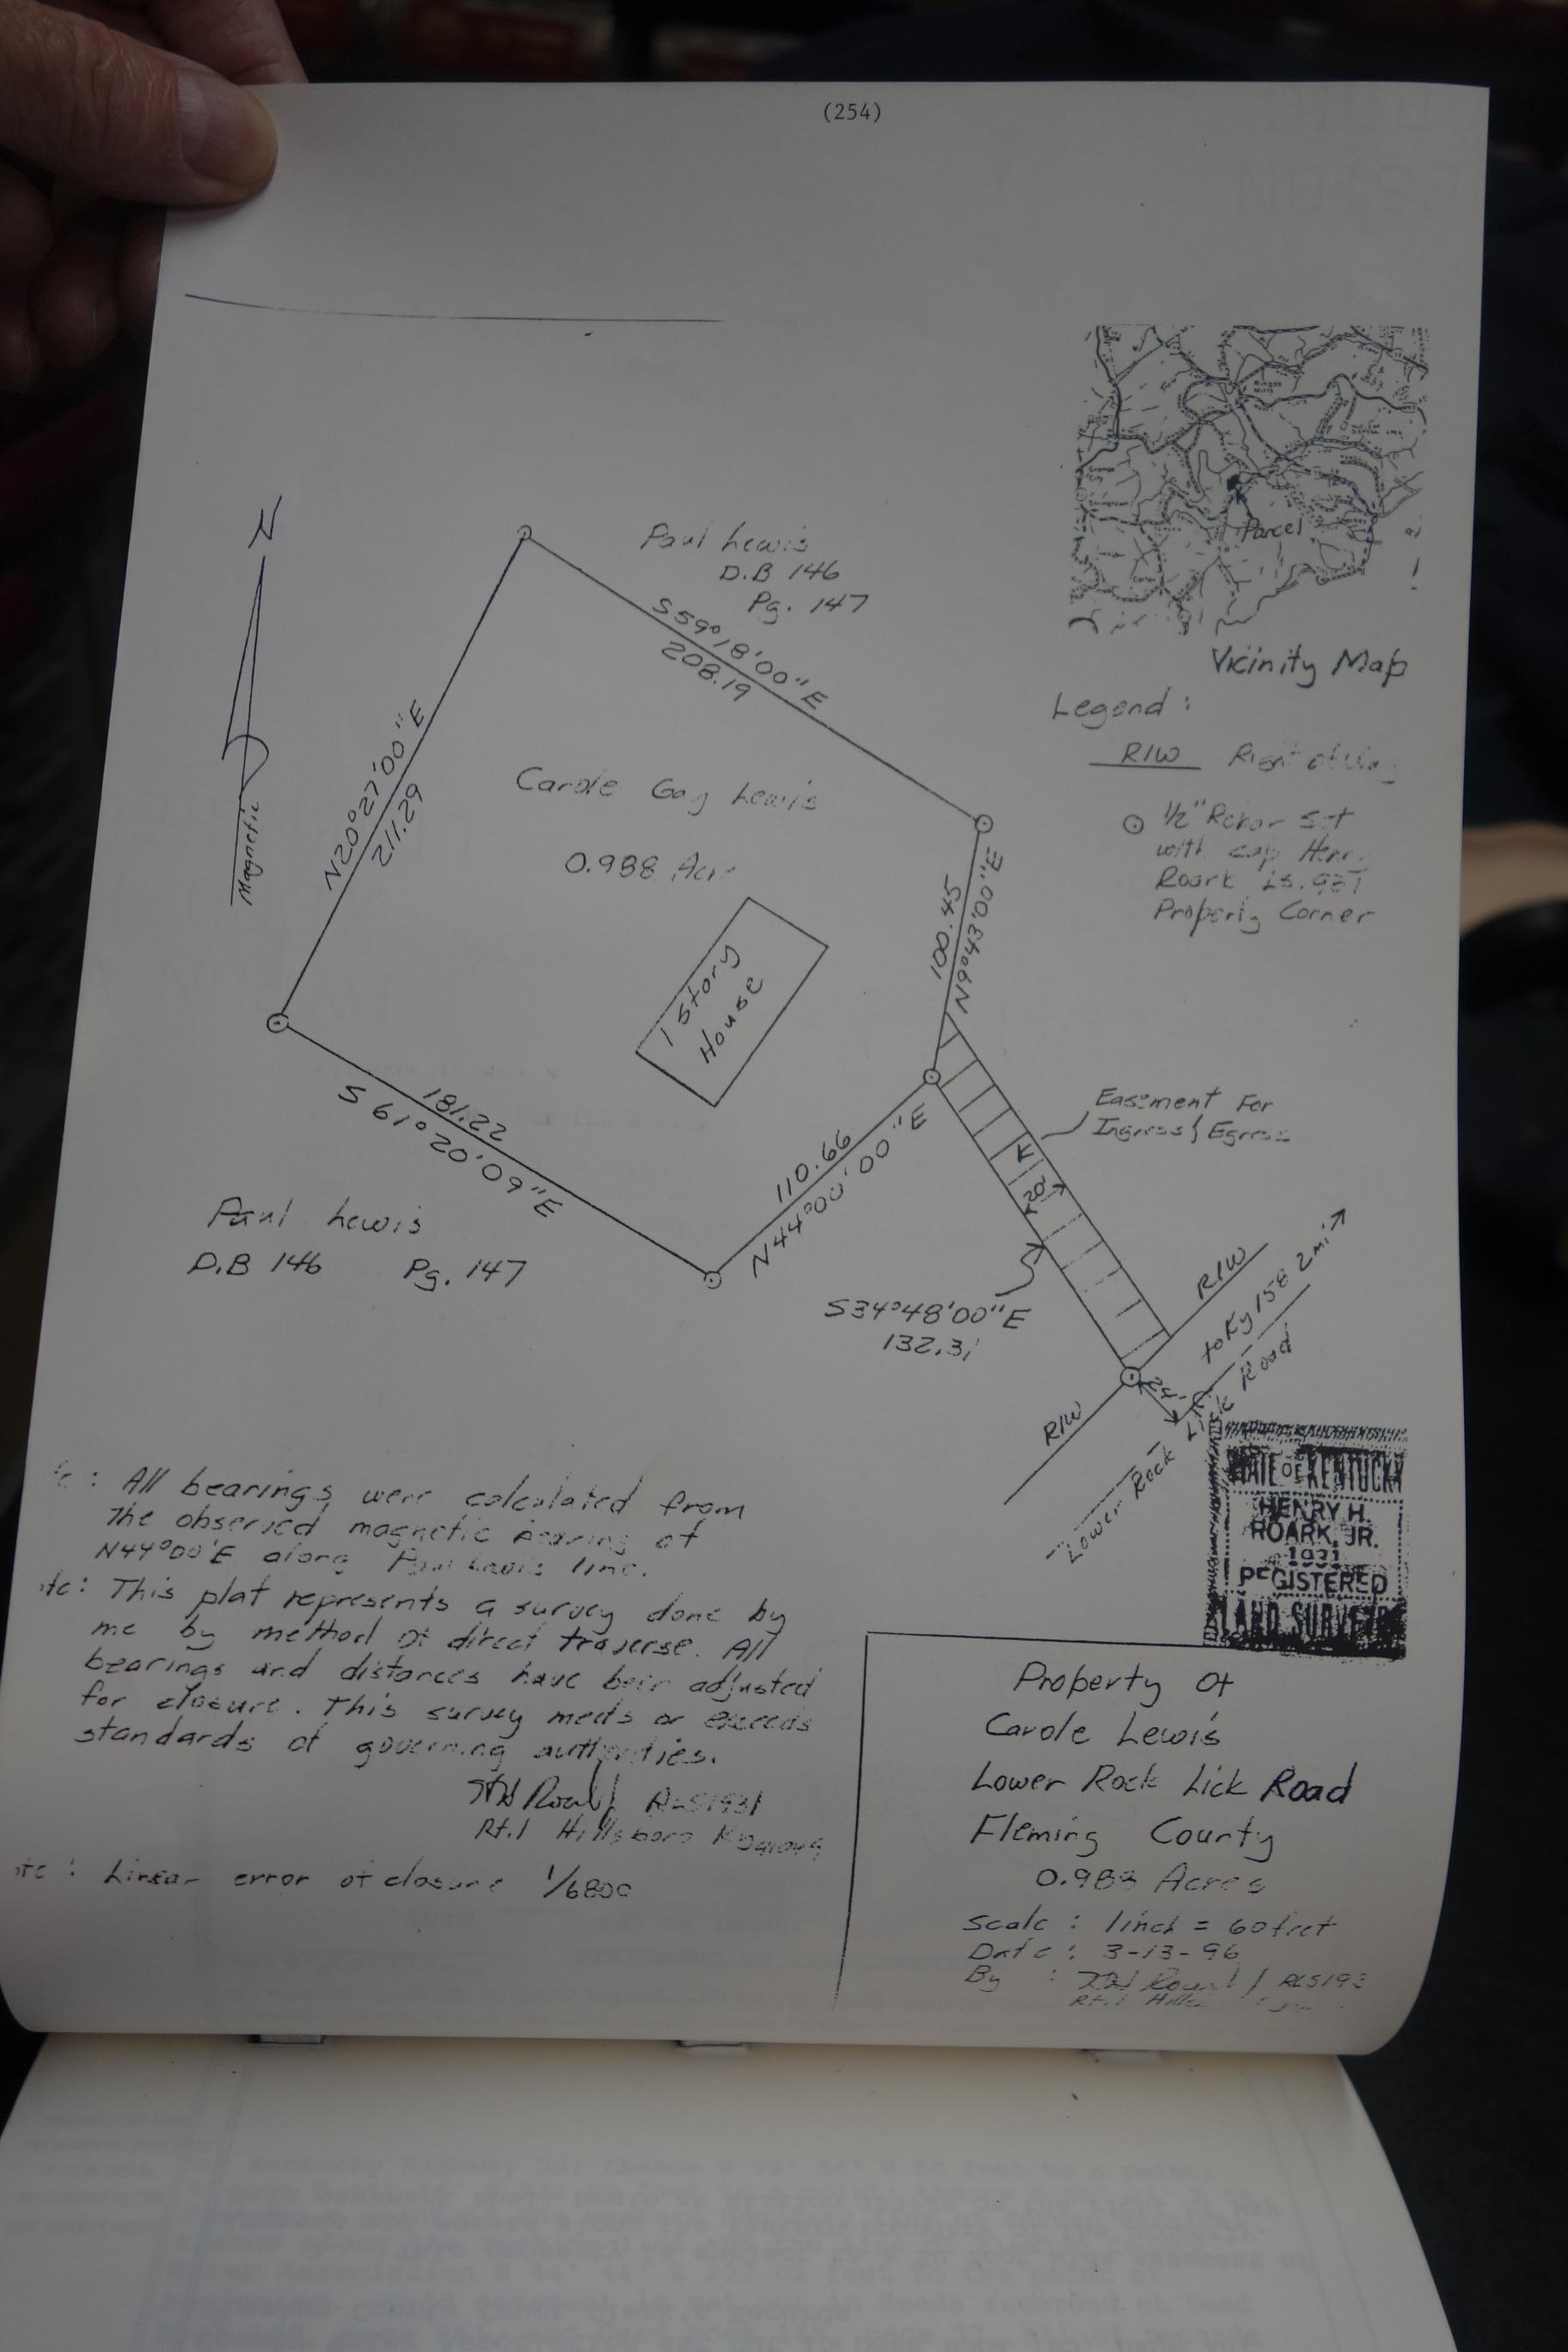 (254)
Paul Lewis
D.B 146
Pg. 147
S59°18'00"E
208.19
N
Magnetic
N20°27'00"E
211.29
Carole Gay Lewis
0.988 Acre
1 Story
House
100.45
N9°43'00"E
181.22
S61°20'09"E
110.66
N44°00'00"E
Paul Lewis
D.B 146 Pg. 147
Parcel
Vicinity Map
Legend :
R/W Right of Way
1/2" Rebar Set
with cap Henry
Roark LS.
Property Corner
Easement For
Ingress & Egress
20'
S34°48'00"E
132.31
R/W
to Ky 158 2mi
R/W
Lower Rock Lick Road
STATE OF KENTUCKY
HENRY H.
ROARK, JR.
1931
REGISTERED
LAND SURVEYOR
: All bearings were calculated from
the observed magnetic bearing of
N44°00'E along Paul Lewis line.
: This plat represents a survey done by
me by method of direct traverse. All
bearings and distances have been adjusted
for closure. This survey meets or exceeds
standards of governing authorities.
RLS1931
Rt.1 Hillsboro Ky 41049
: Linear error of closure 1/6800
Property Of
Carole Lewis
Lower Rock Lick Road
Fleming County
0.988 Acres
Scale : 1inch = 60feet
Date : 3-13-96
By : RLS193
Rt.1